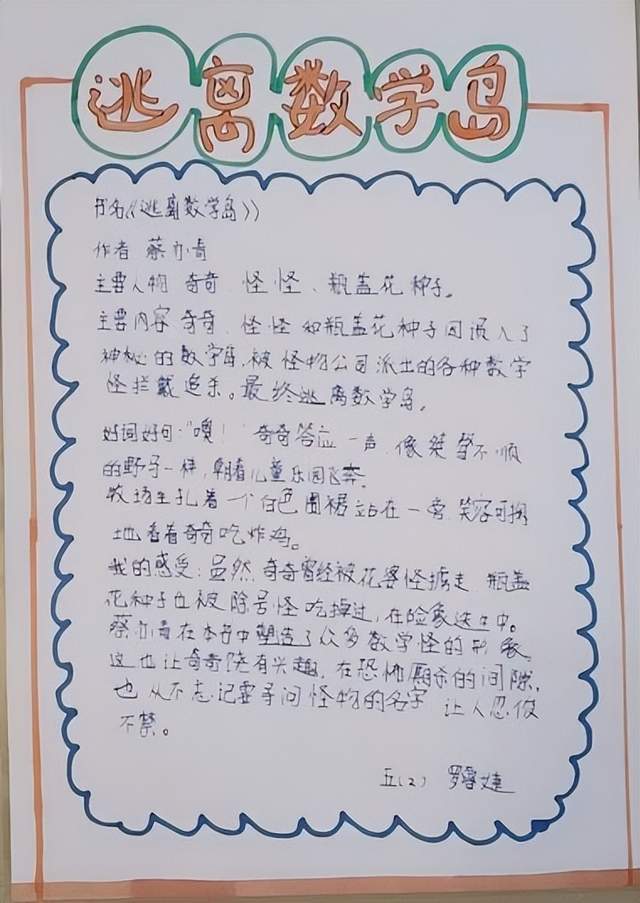 逃离数学岛
书名《逃离数学岛》
作者 蔡亦青
主要人物 奇奇、怪怪、瓶盖花种子。
主要内容 奇奇、怪怪和瓶盖花种子因误入了
神秘的数学岛,被怪物公司派出的各种数学
怪拦截追杀。最终逃离数学岛。
好词好句:“噢!”奇奇答应一声 像桀骜不顺
的野马一样,朝着儿童乐园飞奔。
牧场主扎着一个白色围裙站在一旁,笑容可掬
地看着奇奇吃炸鸡。
我的感受:虽然 奇奇曾经被花婆怪掳走 瓶盖
花种子也被除号怪吃掉过,在险象迭生中。
蔡亦青在本书中塑造了众多数学怪的形象。
这也让奇奇饶有兴趣,在恐怖厮杀的间隙,
也从不忘记要子问怪物的名字 让人忍俊
不禁。
五(2) 罗睿婕